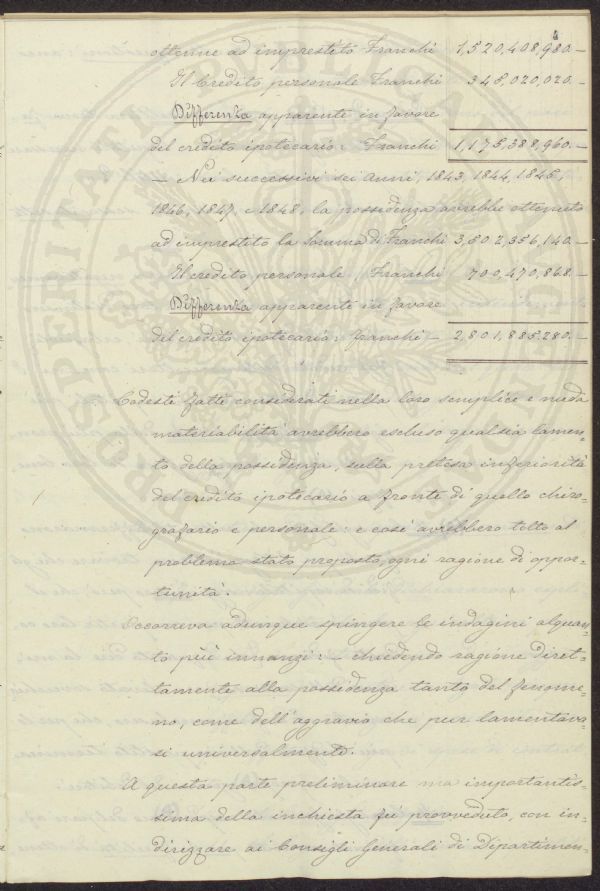 ottenne ad imprestito Franchi 1,520,408,980.—
Il Credito personale Franchi 345,020,020.—
Differenza apparente in favore
del credito ipotecario: Franchi 1,175,388,960.—
— Nei successivi sei anni, 1843, 1844, 1845,
1846, 1847, e 1848, la possidenza avrebbe ottenuto
ad imprestito la Somma di Franchi 3,502,356,140.—
Il credito personale Franchi 700,470,868.—
Differenza apparente in favore
del credito ipotecario: Franchi — 2,801,885,280.—
Codesti fatti considerati nella loro semplice e nuda
materiabilità avrebbero escluso qualsia lamen-
to della possidenza, sulla pretesa inferiorità
del credito ipotecario a fronte di quello chiro-
grafario e personale: e così avrebbero tolto al
problema stato proposto, ogni ragione di oppor-
tunità.
Occorreva adunque spingere le indagini alquan-
to più innanzi: — chiedendo ragione diret-
tamente alla possidenza tanto del fenome-
no, come dell'aggravio che pur lamentava-
si universalmente.
A questa parte preliminare ma importantis-
sima della inchiesta fu provveduto, con in-
dirizzare ai Consigli Generali di Dipartimen-